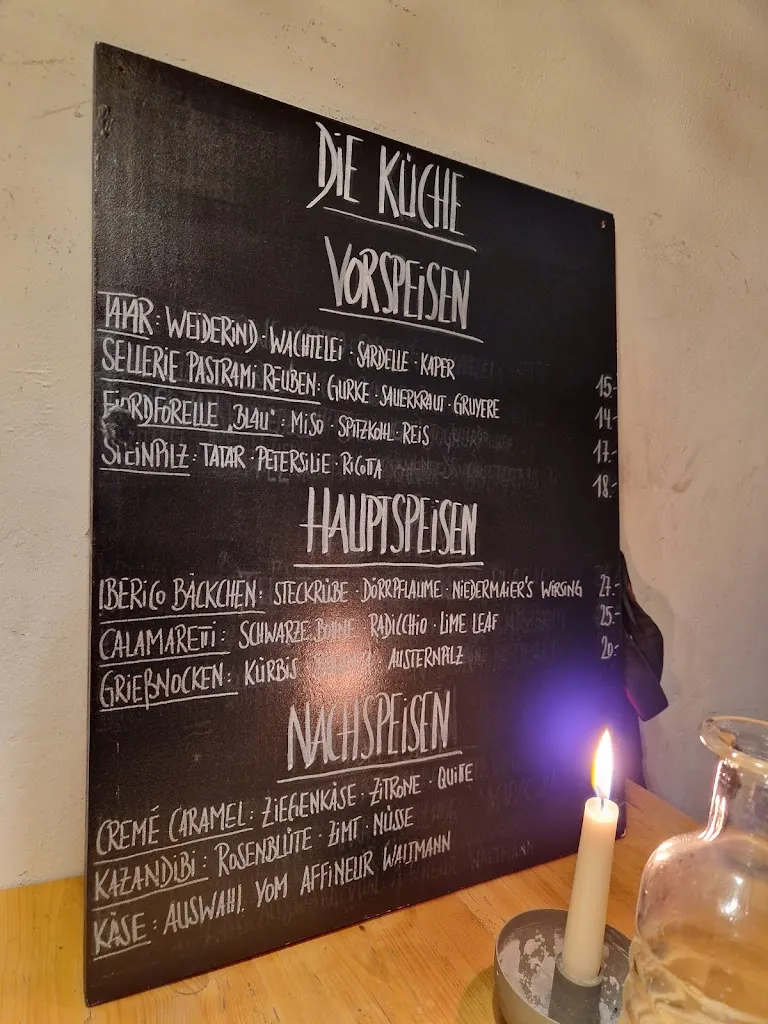 DIE KÜCHE
VORSPEISEN
TATAR: WEIDERIND · WACHTELEI · SARDELLE · KAPER 15.-
SELLERIE PASTRAMI REUBEN: GURKE · SAUERKRAUT · GRUYERE 14.-
FJORDFORELLE „BLAU“: MISO · SPITZKOHL · REIS 17.-
STEINPILZ: TATAR · PETERSILIE · RICOTTA 18.-
HAUPTSPEISEN
IBERICO BÄCKCHEN: STECKRÜBE · DÖRRPFLAUME · NIEDERMAIER'S WIRSING 27.-
CALAMARETTI: SCHWARZE BOHNE RADICCHIO · LIME LEAF 25.-
GRIEßNOCKEN: KÜRBIS AUSTERNPILZ 20.-
NACHSPEISEN
CREMÉ CARAMEL: ZIEGENKÄSE · ZITRONE · QUITTE
KAZANDIBI: ROSENBLÜTE · ZIMT · NÜSSE
KÄSE: AUSWAHL VOM AFFINEUR WALTMANN